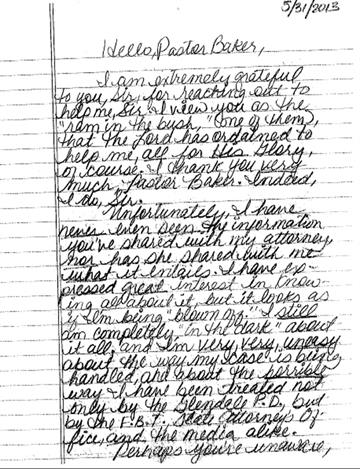 5/31/2013
Hello, Pastor Baker,
I am extremely grateful
to you, Sir, for reaching out to
help me, Sir. I view you as the
"ram in the bush" (one of them),
that the Lord has ordained to
help me, all for His Glory,
of course. I thank you very
much, Pastor Baker. Indeed,
I do, Sir.
Unfortunately, I have
never even seen the information
you've shared with my attorney,
nor has she shared with me
what it entails. I have ex-
pressed great interest in know-
ing all about it, but it looks as
if I'm being "blown off." I still
am completely "in the dark" about
it all, and I'm very, very, uneasy
about the way my case is being
handled, and about the horrible
way I have been treated not
only by the Glendale P.D., but
by the F.B.I., Attorneys Of-
fice, and the media alike.
Perhaps you're unaware,